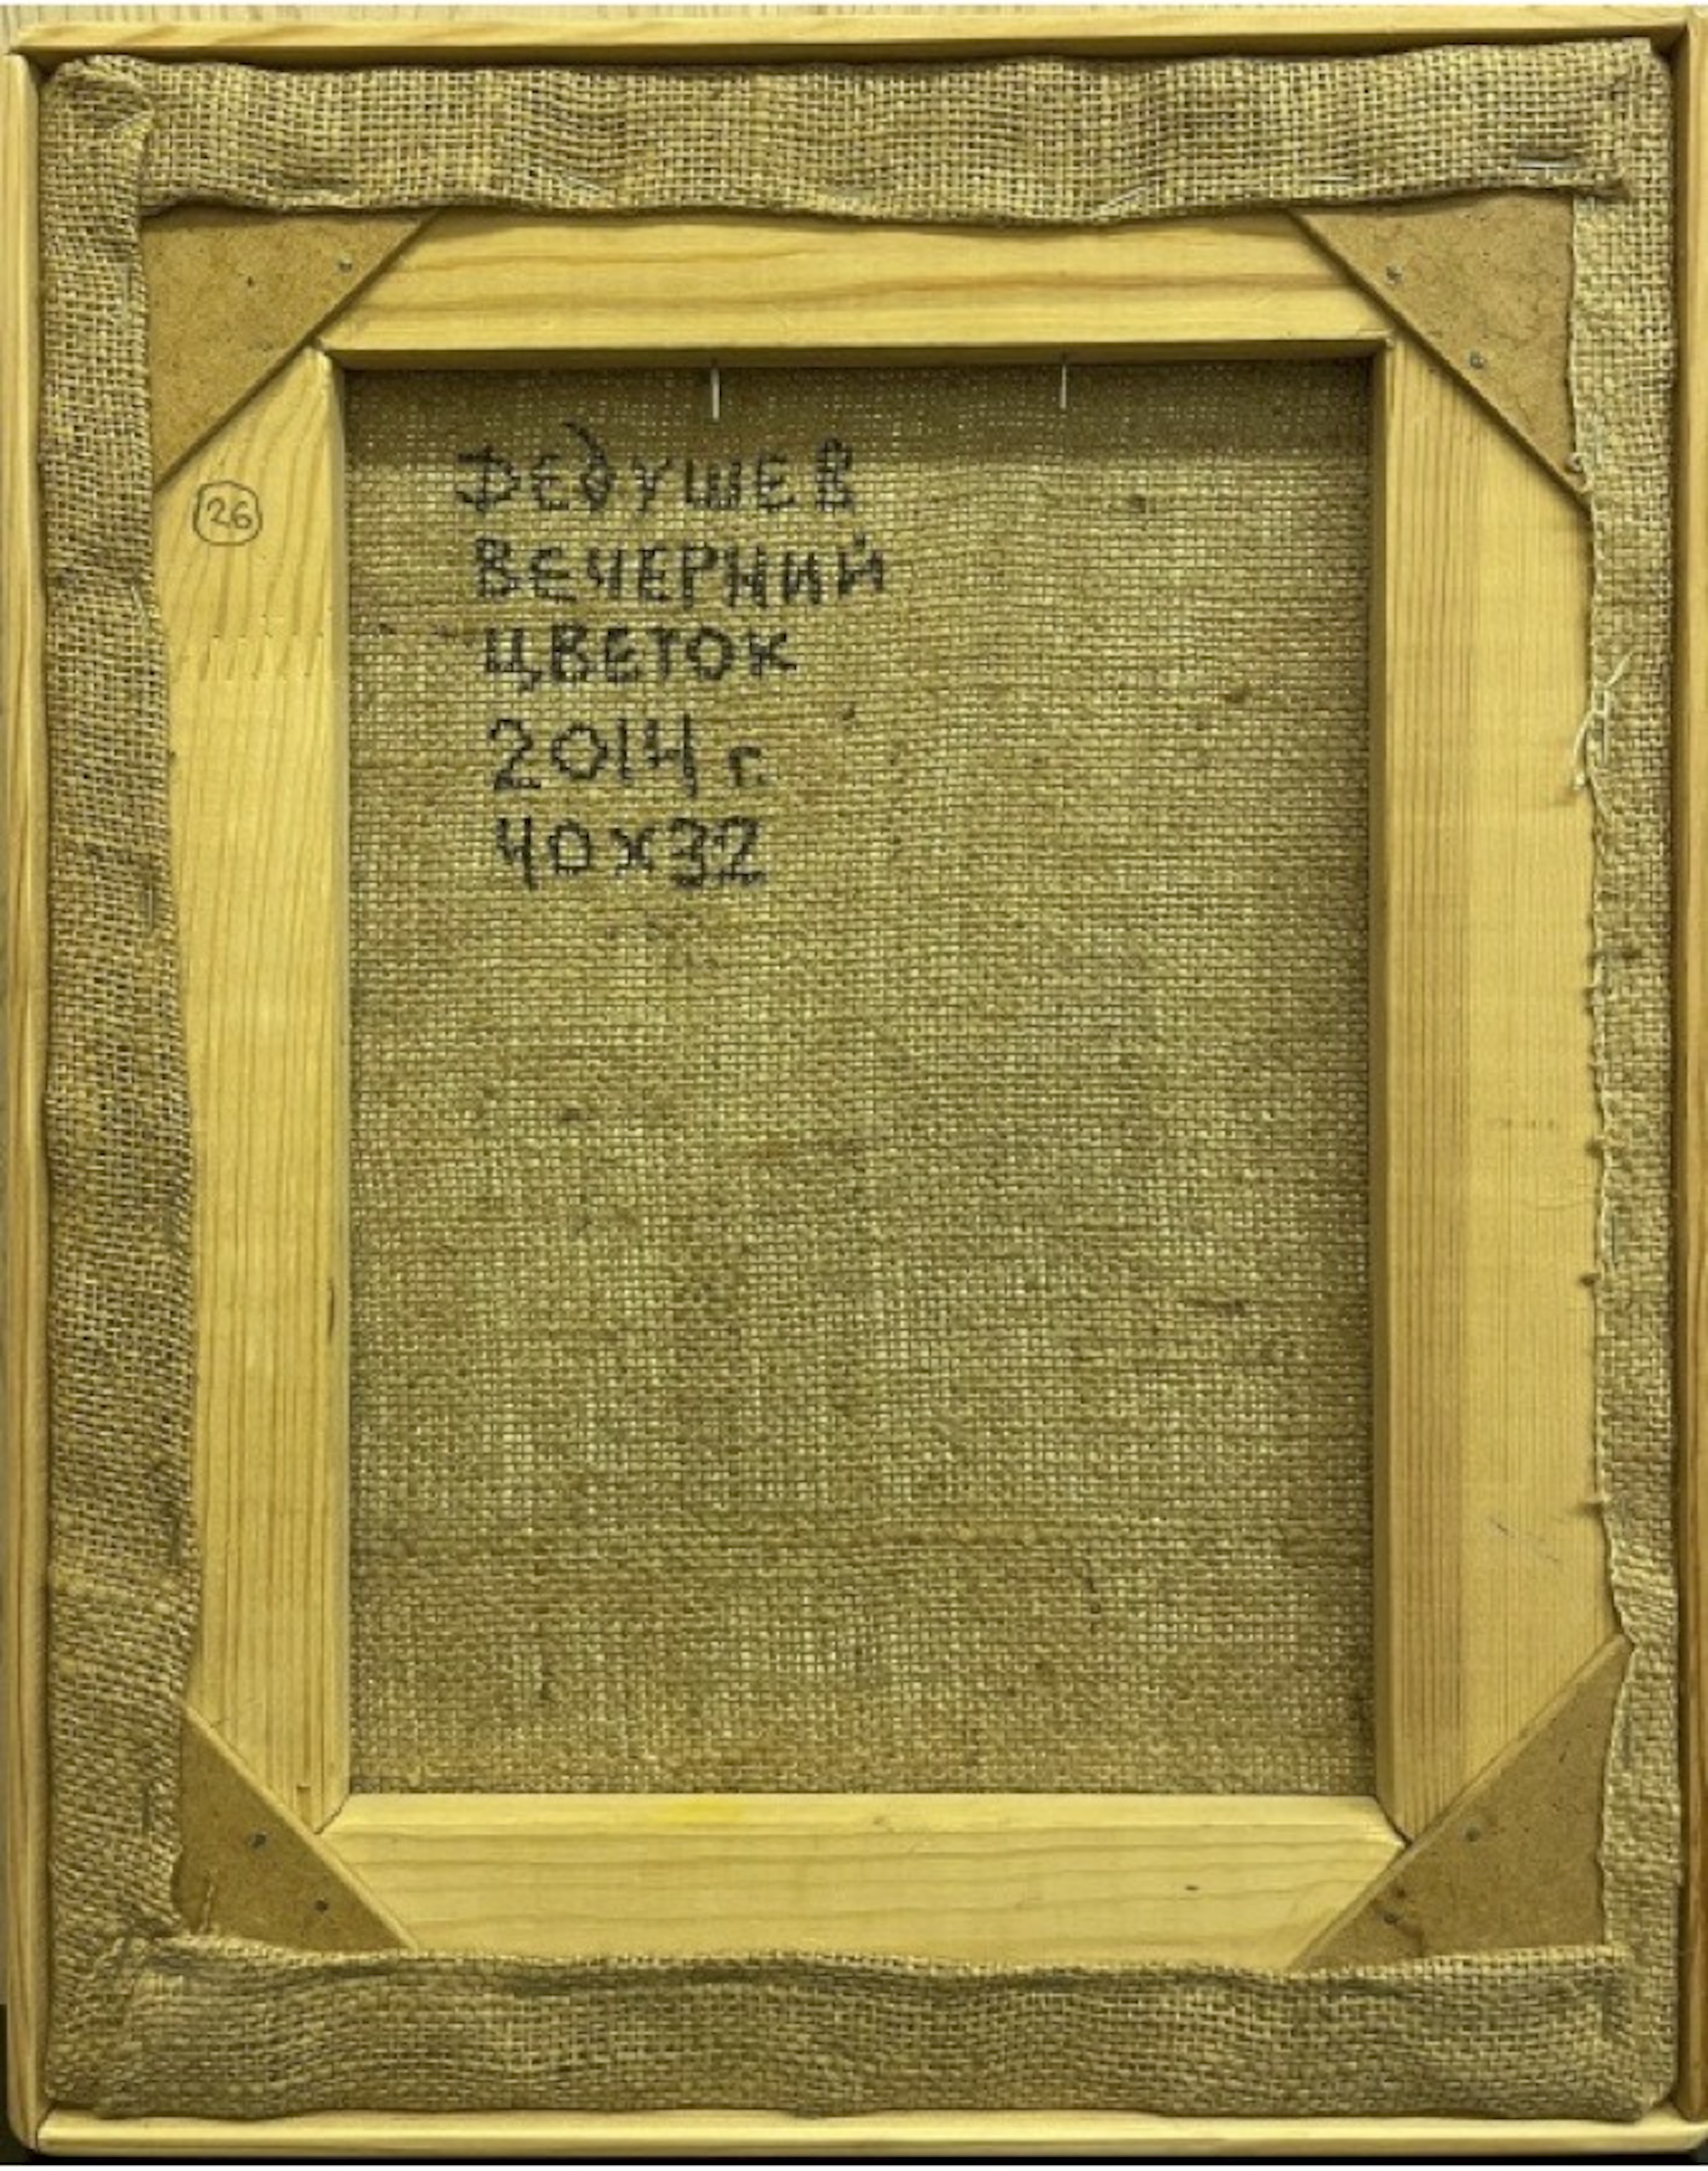 ДЕДУШЕВ
26
ВЕЧЕРНИЙ
ЦВЕТОК
2014 г.
40х32